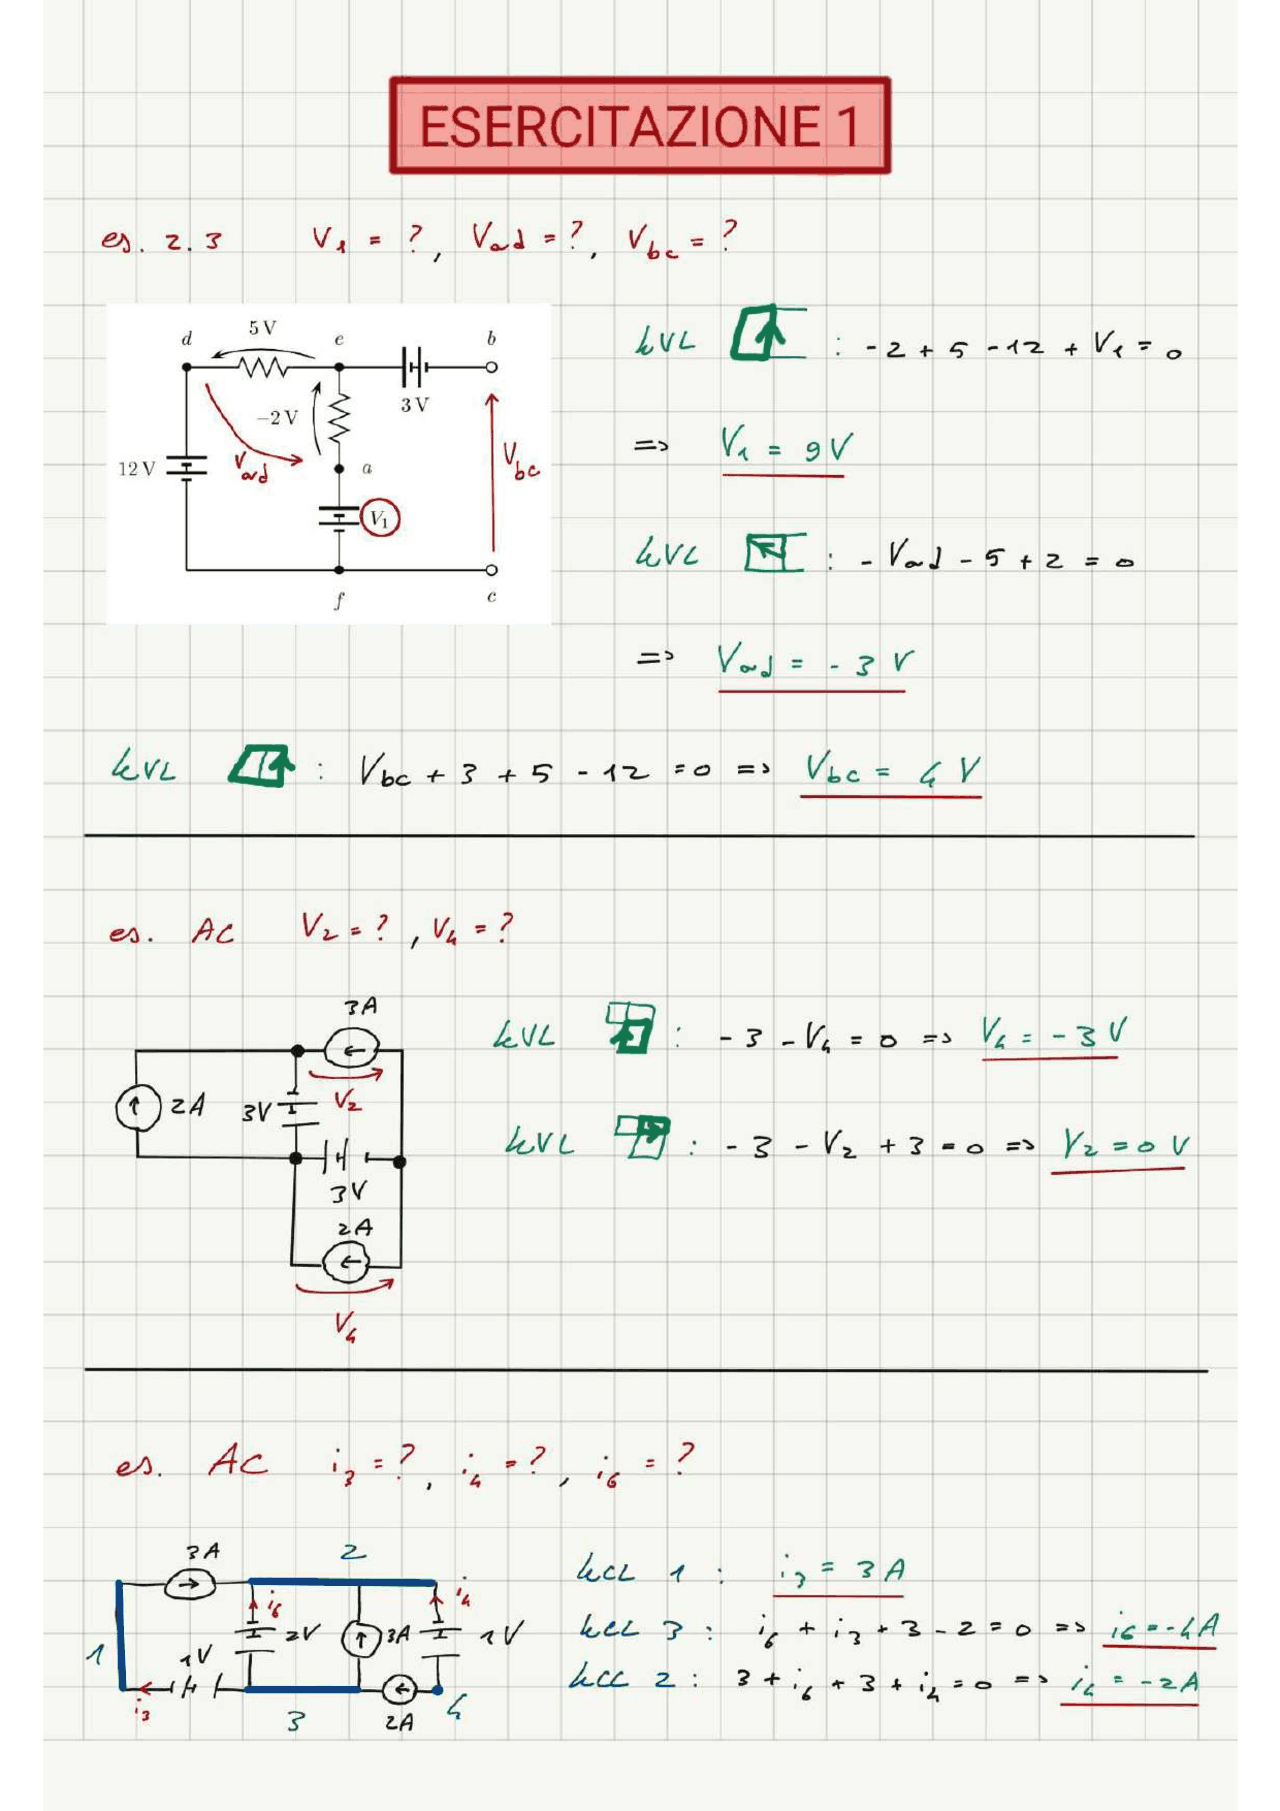 ESERCITAZIONE 1
es. 2.3 V1 = ?, Vad = ?, Vbc = ?
d 5V e b
-2V 3V
12V Vad a Vbc
V1
f c
KVL : -2 + 5 - 12 + V1 = 0
=> V1 = 9V
KVL : - Vad - 5 + 2 = 0
=> Vad = - 3 V
KVL : Vbc + 3 + 5 - 12 = 0 => Vbc = 4 V
es. AC V2 = ?, V4 = ?
3A
2A 3V V2
3V
2A
V4
KVL : - 3 - V4 = 0 => V4 = - 3 V
KVL : - 3 - V2 + 3 = 0 => V2 = 0 V
es. AC i3 = ?, i4 = ?, i6 = ?
3A 2
i6 i4
1 1V 2V 3A 1V
i3 3 2A 4
KCL 1 : i3 = 3 A
KCL 3 : i6 + i3 + 3 - 2 = 0 => i6 = -4A
KCL 2 : 3 + i6 + 3 + i4 = 0 => i4 = -2A